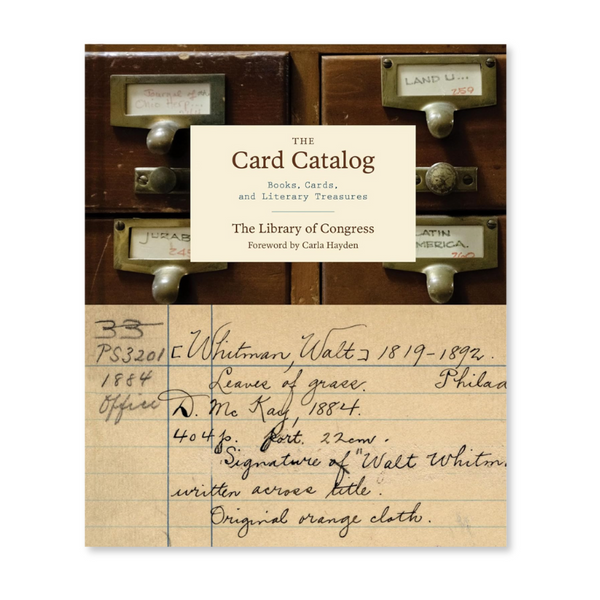 Journal of
LAND U...
259
THE
Card Catalog
Books, Cards,
and Literary Treasures
The Library of Congress
Foreword by Carla Hayden
JURAS
LATIN
AMERICA.
33
PS3201
1884
Office
[Whitman, Walt] 1819-1892.
Leaves of grass. Philad
D. Mc Kay, 1884.
404 p. port. 22cm.
Signature of "Walt Whitm
written across title.
Original orange cloth.